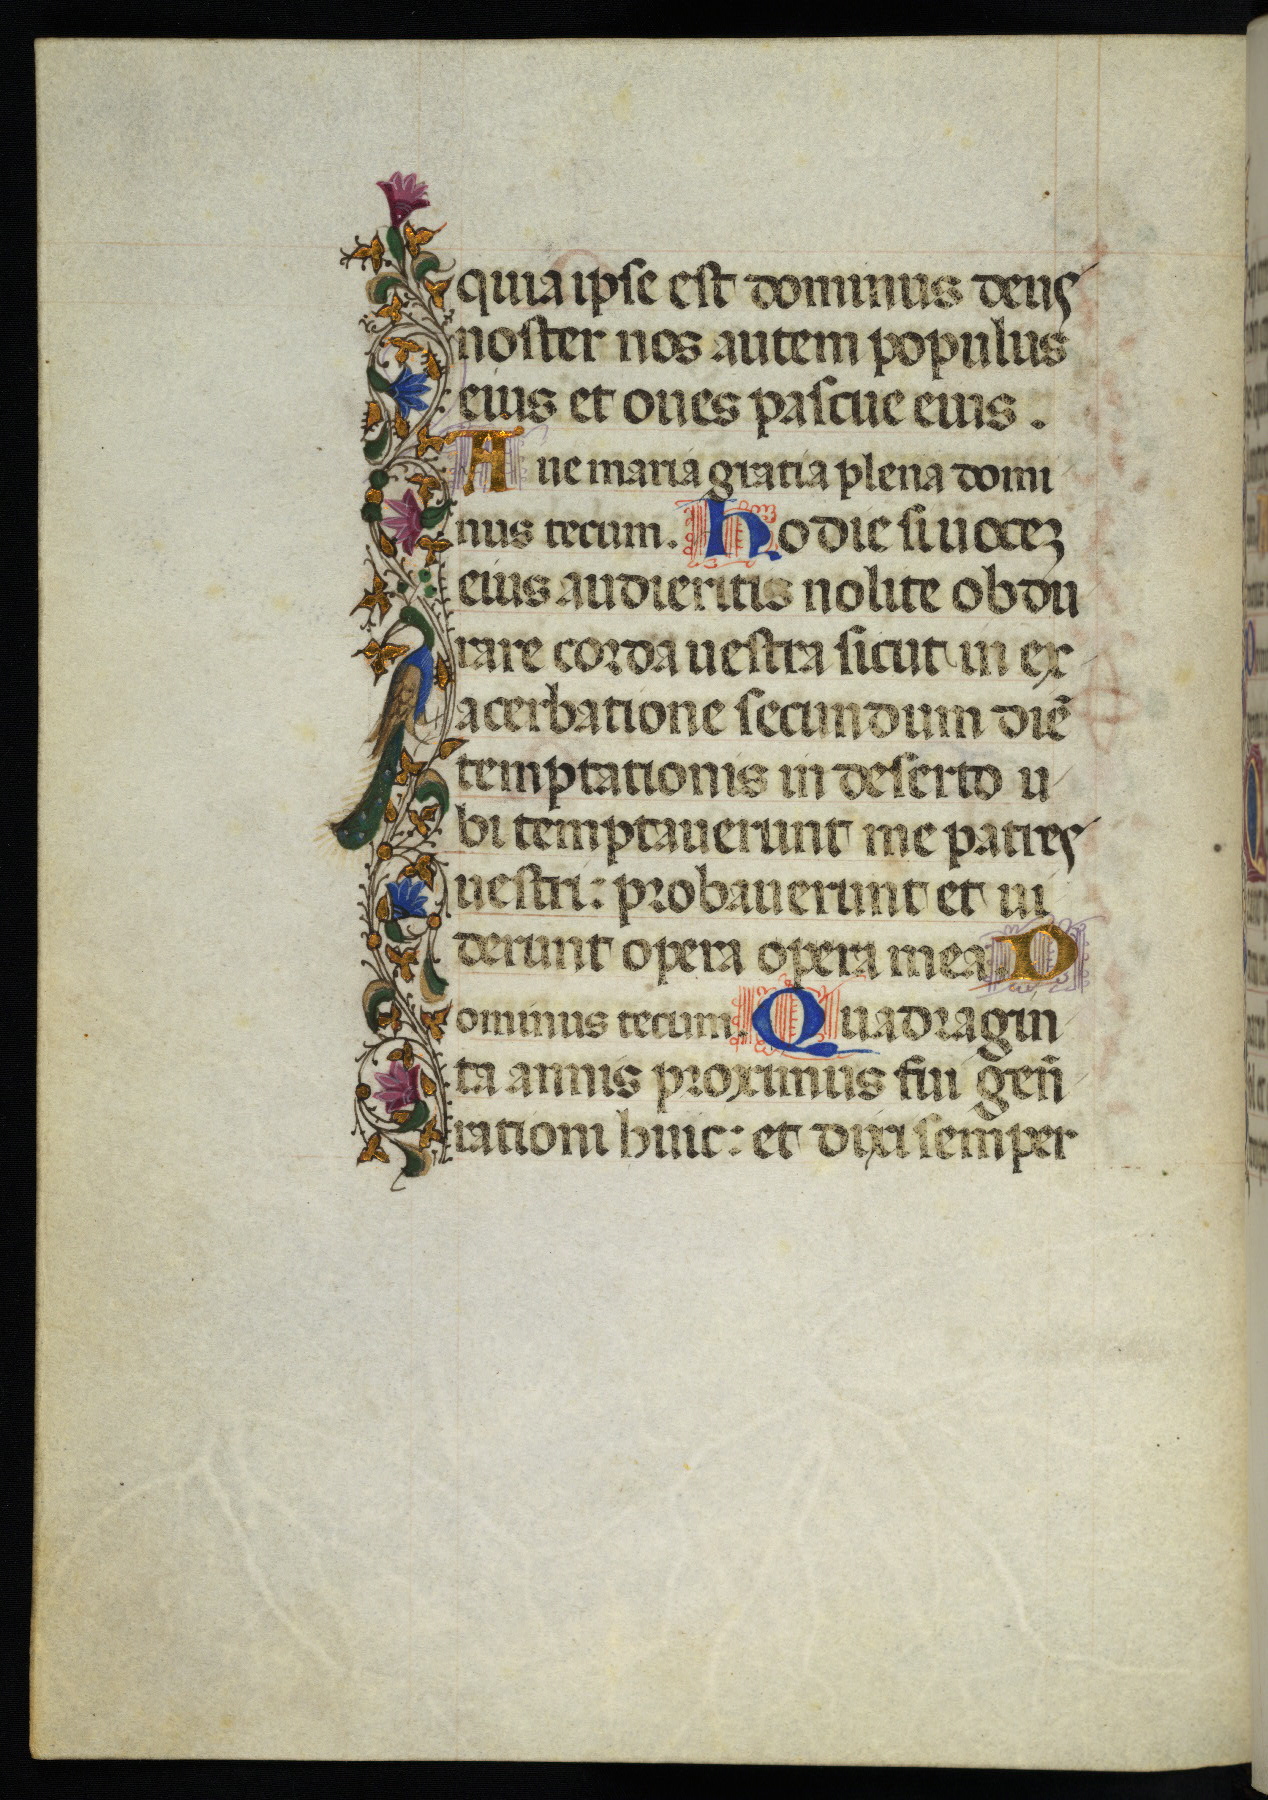 quia ipse est dominus deus
noster nos autem populus
eius et oues pascue eius.
Aue maria gratia plena domi
nus tecum. Hodie si uocez
eius audieritis nolite obdu
rare corda uestra sicut in ex
acerbatione secundum diē
temptationis in deserto u
bi temptauerunt me patres
uestri: probauerunt et ui
derunt opera opera mea. D
ominus tecum. Quadragin
ta annis proximus fui gen̄
rationi huic: et dixi semper